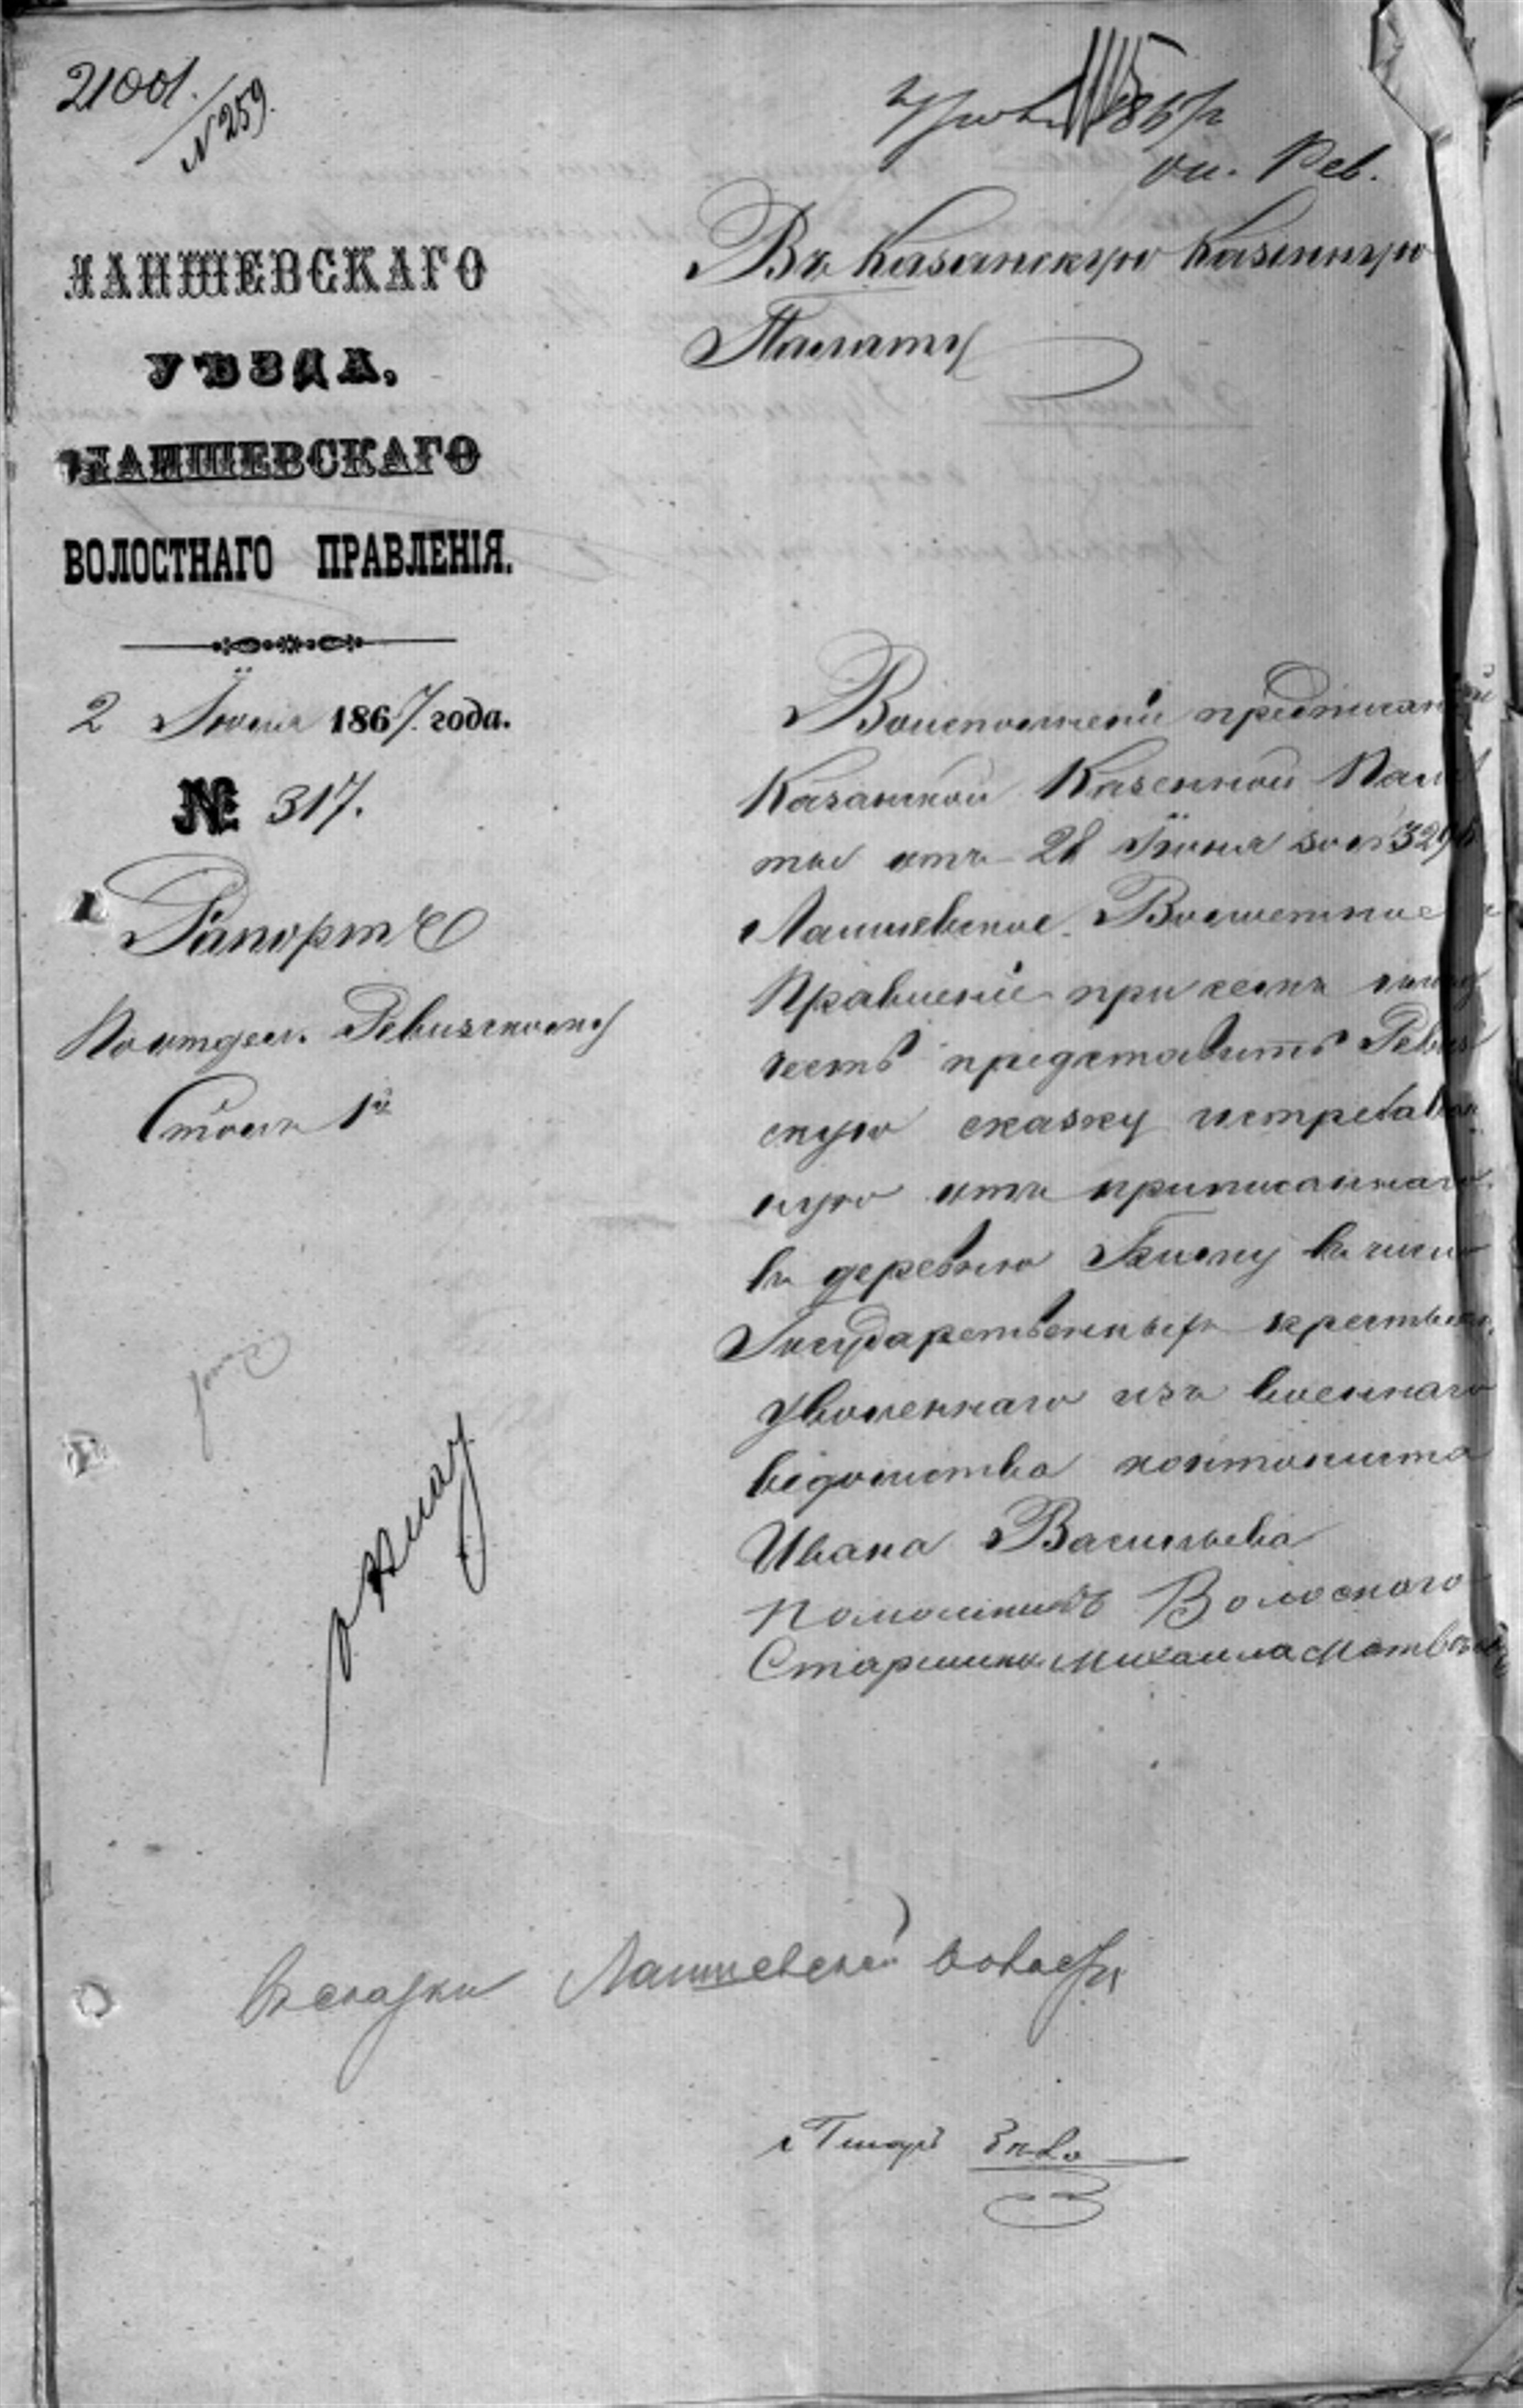 21001.
N 259.
Рев.
Въ Казанскую Казенную
Палату
ЛАИШЕВСКАГО
УѢЗДА,
ЛАИШЕВСКАГО
ВОЛОСТНАГО ПРАВЛЕНІЯ.
2 Іюля 1867. года.
№ 317.
Рапортъ
По отдел. Ревизскому
Столъ 1й
Воисполненіе предписаній
Казанской Казенной Пала
ты отъ 28 Іюня за №
Лаишевское Волостное
Правленіе при семъ имѣ
честь представить Ревиз
скую сказку истребован
ную отъ приписаннаго
въ деревню въ число
Государственныхъ крестьянъ
уволеннаго изъ военнаго
вѣдомства кантониста
Ивана Васильева
Помошникъ Волоснаго
Старшины Михаила Матвѣевъ
къ сказки Лаишевской
Писарь